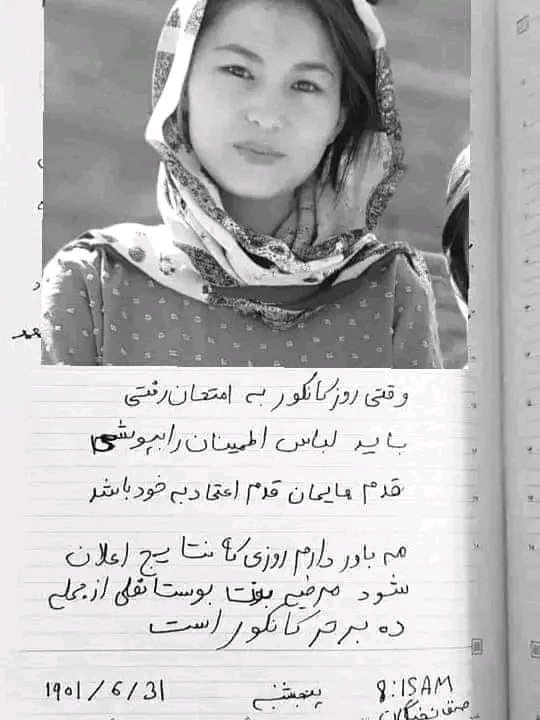 وقتی روز کانکور به امتحان رفتی
باید لباس اطمینان را بپوشی
قدم هایمان قدم اعتماد به خود باشد
مه باور دارم روزی که نتایج اعلان
شود مرضیه بوستانقلی از جمله
ده برتر کانکور است
8:15 AM پنجشنبه 1901/6/31